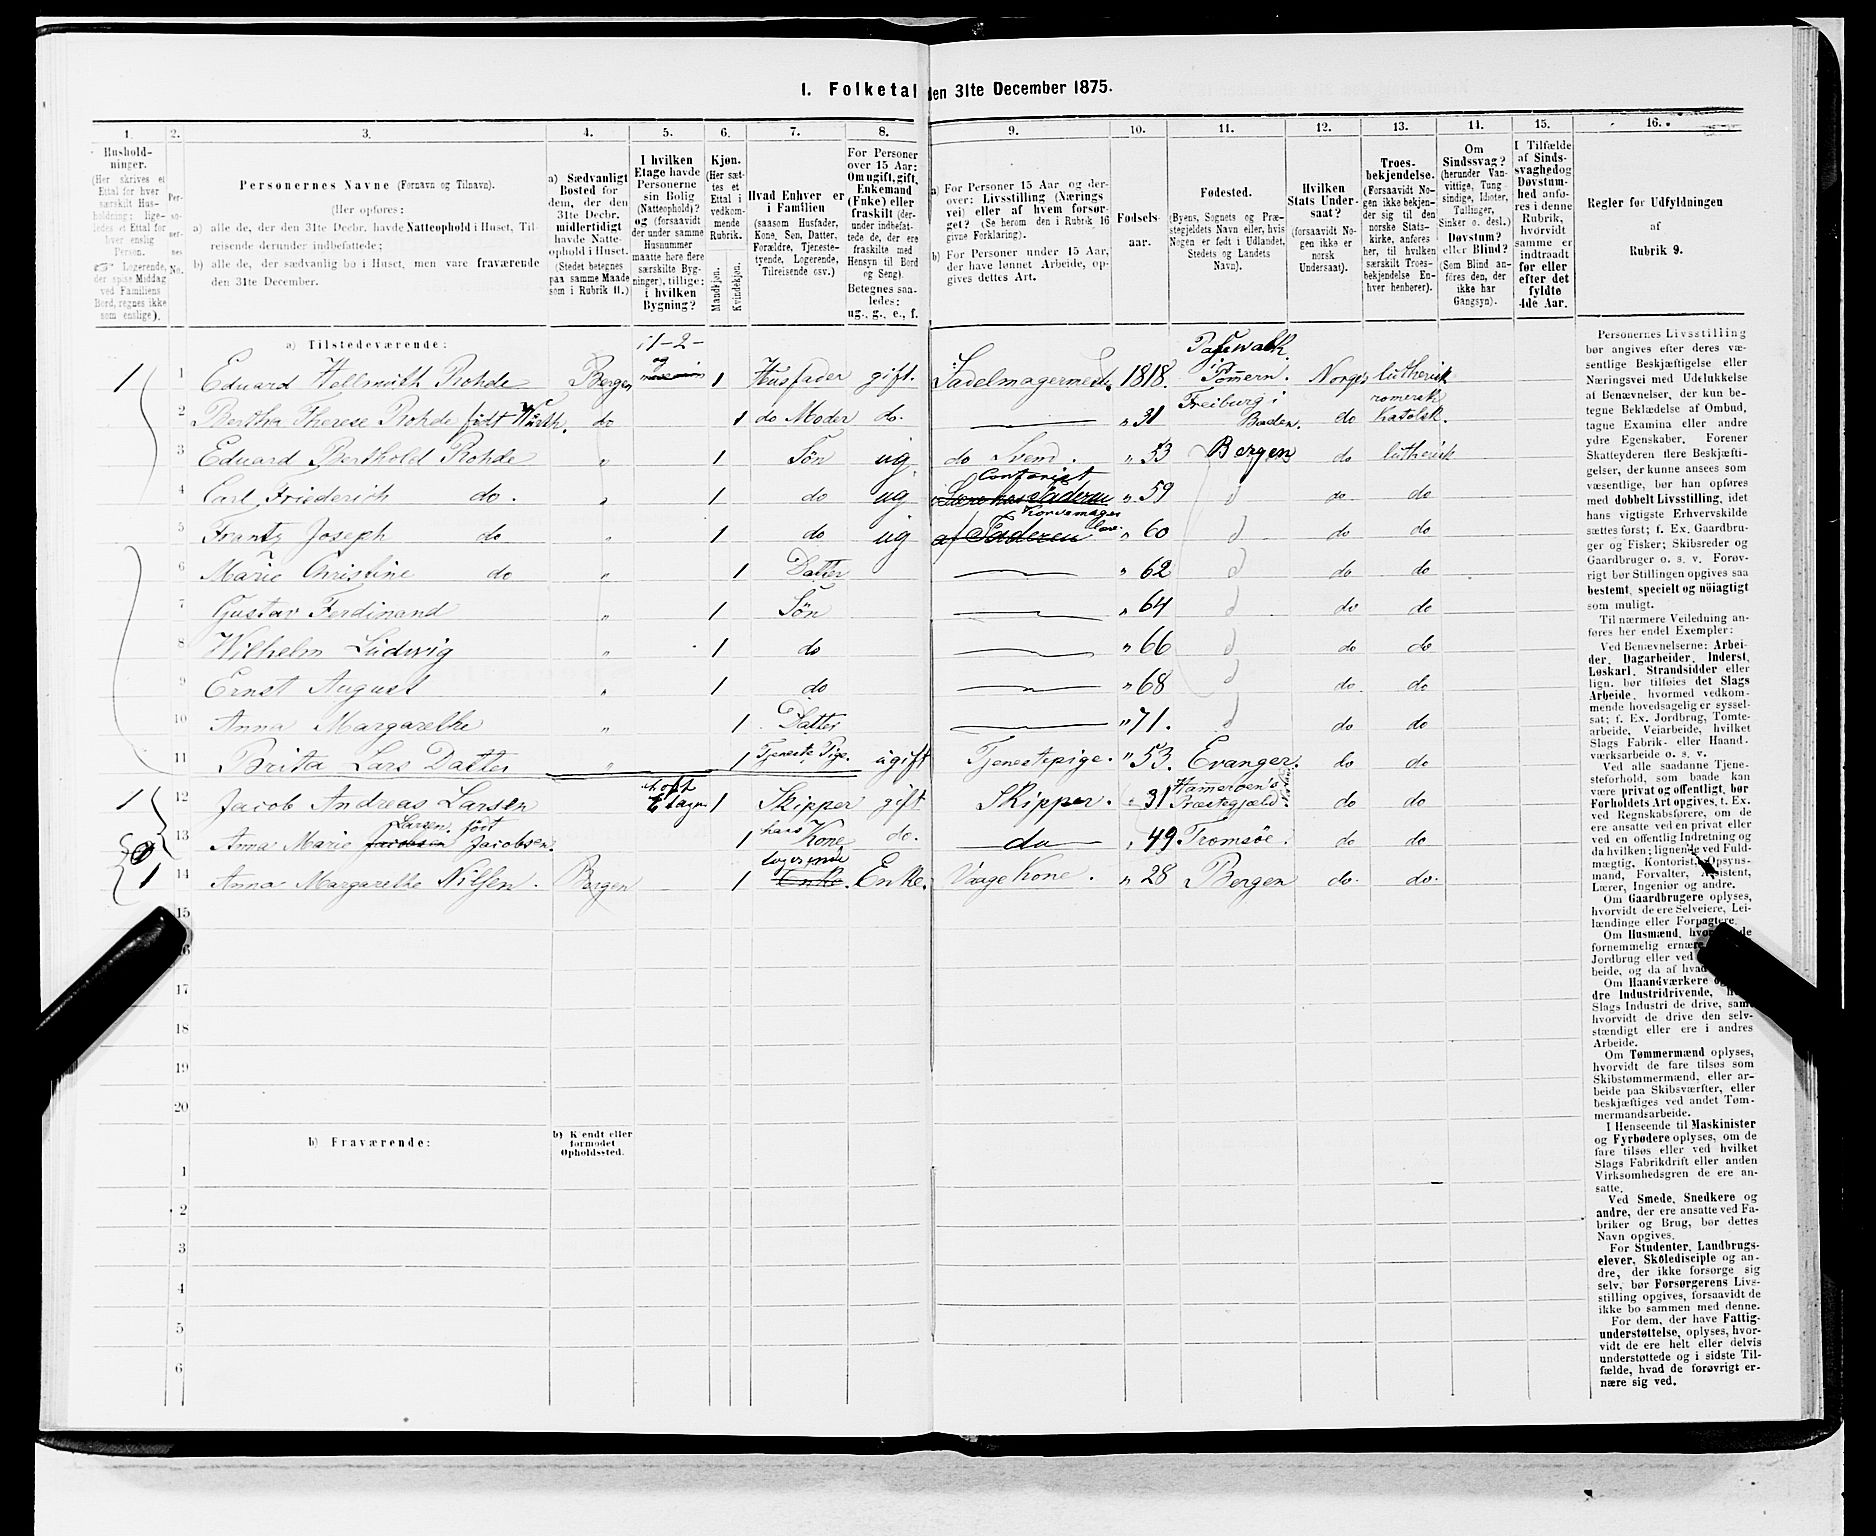 1. Folketal den 31te December 1875.
1. 2. 3. 4. 5. 6. 7. 8. 9. 10. 11. 12. 13. 14. 15. 16.
Hushold-
ninger.
(Her skrives et
Ettal for hver
særskilt Hus-
holdning; lige-
ledes et Ettal for
hver enslig
Person.
☞ Logerende,
der spise Middag
ved Familiens
Bord, regnes ikke
som enslige).
Per-
so-
ner-
nes
No.
Personernes Navne (Fornavn og Tilnavn).
(Her opføres:
a) alle de, der den 31te Decbr. havde Natteophold i Huset, Til-
reisende derunder indbefattede;
b) alle de, der sædvanlig bo i Huset, men vare fraværende
den 31te December.
a) Sædvanligt
Bosted for
dem, der den
31te Decbr.
midlertidigt
havde Natte-
ophold i Huset.
(Stedet betegnes
paa samme Maade
som i Rubrik 11.)
I hvilken
Etage havde
Personerne
sin Bolig
(Natteophold)?
og (forsaavidt
der under samme
Husnummer
maatte høre flere
særskilte Byg-
ninger), tillige:
i hvilken
Bygning?
Kjøn.
(Her sæt-
tes et
Ettal i
vedkom-
mende
Rubrik.
Mandkjøn.
Kvindekjøn.
Hvad Enhver er
i Familien
(saasom Husfader,
Kone, Søn, Datter,
Forældre, Tjeneste-
tyende, Logerende,
Tilreisende osv.)
For Personer
over 15 Aar:
Om ugift, gift,
Enkemand
(Enke) eller
fraskilt (der-
under indbefat-
tede de, der ere
fraskilte med
Hensyn til Bord
og Seng).
Betegnes saa-
ledes:
ug., g., e., f.
a) For Personer 15 Aar og der-
over: Livsstilling (Nærings
vei) eller af hvem forsør-
get? (Se herom den i Rubrik 16
givne Forklaring).
b) For Personer under 15 Aar,
der have lønnet Arbeide, op-
gives dettes Art.
Fødsels-
aar.
Fødested.
(Byens, Sognets og Præ-
stegjeldets Navn eller, hvis
Nogen er født i Udlandet,
Stedets og Landets
Navn).
Hvilken
Stats Under-
saat?
(forsaavidt No-
gen ikke er
norsk
Undersaat).
Troes-
bekjendelse.
(Forsaavidt No-
gen ikke bekjen-
der sig til den
norske Stats-
kirke, anføres
her, til hvilken
særskilt Troes-
bekjendelse En-
hver henhører).
Om
Sindssvag?
(herunder Van-
vittige, Tung
sindige, Idioter,
Tullinger,
Sinker o. desl.)
Døvstum?
eller Blind?
(Som Blind an-
føres den, der
ikke har
Gangsyn).
I Tilfælde
af Sinds-
svaghed og
Døvstum-
hed anfø-
res i denne
Rubrik,
hvorvidt
samme er
indtraadt
før eller
efter det
fyldte
4de Aar.
Regler før Udfyldningen
af
Rubrik 9.
a) Tilstedeværende:
1 1 Eduard Hellmuth Rohde Bergen 1-2- og 1 Husfader gift. Sadelmagermest. 1818. Pasewalk i Pommern. Norges luthersk
2 Bertha Therese Rohde født Würth. do 1 do Moder do. — " 31 Freiburg i Baden. do romersk Katolsk.
3 Eduard Berthold Rohde " 1 Søn ug. do Svend. " 53 Bergen do luthersk
4 Carl Friederich do. " 1 do ug Contorist " 59 d do do
5 Frantz Joseph do " 1 do ug af Faderen " 60 d do do
6 Marie Christine do " 1 Datter — " 62 d do do
7 Gustav Ferdinand " 1 Søn — " 64 d do do
8 Wilhelm Ludwig " 1 do — " 66 d do do
9 Ernst August " 1 do — " 68 d do. do
10 Anna Margarethe " 1 Datter — " 71. d do do
11 Brita Lars Datter " 1 Tjeneste Pige. ugift Tjenestepige. " 53. Evanger. do do
1 12 Jacob Andreas Larsen Etagen 1 Skipper gift Skipper. " 31 Hammerøen's Præstegjæld. do do
0 13 Anna Marie Jacobsen Larsen født Jacobsen. 1 hans Kone do. do " 49 Tromsøe. do do
1 14 Anna Margarethe Nilsen. Bergen 1 logerende Enke. Enke. Vaage Kone. " 28 Bergen do. do.
15
16
17
18
19
20
b) Fraværende:
b) Kjendt eller
formodet
Opholdssted.
1
2
3
4
5
6
Personernes Livsstilling
bør angives efter deres væ-
sentlige Beskjæftigelse eller
Næringsvei med Udelukkelse
af Benævnelser, der kun be-
tegne Beklædelse af Ombud,
tagne Examina eller andre
ydre Egenskaber. Forener
Skatteyderen flere Beskjæfti-
gelser, der kunne ansees som
væsentlige, bør han opføres
med dobbelt Livsstilling, idet
hans vigtigste Erhvervskilde
sættes først; f. Ex. Gaardbru-
ger og Fisker; Skibsreder og
Gaardbruger o. s. v. Forøv-
rigt bør Stillingen opgives saa
bestemt, specielt og nöiagtigt
som muligt.
Til nærmere Veiledning an-
føres her endel Exempler:
Ved Benævnelserne: Arbei-
der, Dagarbeider, Inderst,
Løskarl, Strandsidder eller
lign. bør tilføies det Slags
Arbeide, hvormed vedkom-
mende hovedsagelig er syssel-
sat; f. Ex. Jordbrug, Tomte-
arbeide, Veiarbeide, hvilket
Slags Fabrik- eller Haand-
værksarbeide o. s. v.
Ved alle saadanne Tjene-
steforhold, som baade kan
være privat og offentligt, bør
Forholdets Art opgives, t. Ex.
ved Regnskabsførere, om de
ere ansatte ved en privat eller
ved en offentlig Indretning og
da hvilken; lignende ved Fuld-
mægtig, Kontorist, Opsyns-
mand, Forvalter, Assistent,
Lærer, Ingeniør og andre.
Om Gaardbrugere oplyses,
hvorvidt de ere Selveiere, Lei-
lændinge eller Forpagtere.
Om Husmænd,
fornemmelig ernære
Jordbrug eller ved
beide, og da af hvad
Om Haandværkere og
dre Industridrivende,
Slags Industri de drive, samt
hvorvidt de drive den selv-
stændigt eller ere i andres
Arbeide.
Om Tømmermænd oplyses,
hvorvidt de fare tilsøs som
Skibstømmermænd, eller ar-
beide paa Skibsværfter, eller
beskjæftiges ved andet Tøm-
mermandsarbeide.
I Henseende til Maskinister
og Fyrbødere oplyses, om de
fare tilsøs eller ved hvilket
Slags Fabrikdrift eller anden
Virksomhedsgren de ere an-
satte.
Ved Smede, Snedkere og
andre, der ere ansatte ved Fa-
briker og Brug, bør dettes
Navn opgives.
For Studenter, Landbrugs-
elever, Skoledisciple og an-
dre, der ikke forsørge sig
selv, bør Forsørgerens Livs-
stilling opgives, forsaavidt de
ikke bo sammen med denne.
For dem, der have Fattig-
understøttelse, oplyses, hvor-
vidt de ere helt eller delvis
understøttede og i sidste Til-
fælde, hvad de forøvrigt er-
nære sig ved.